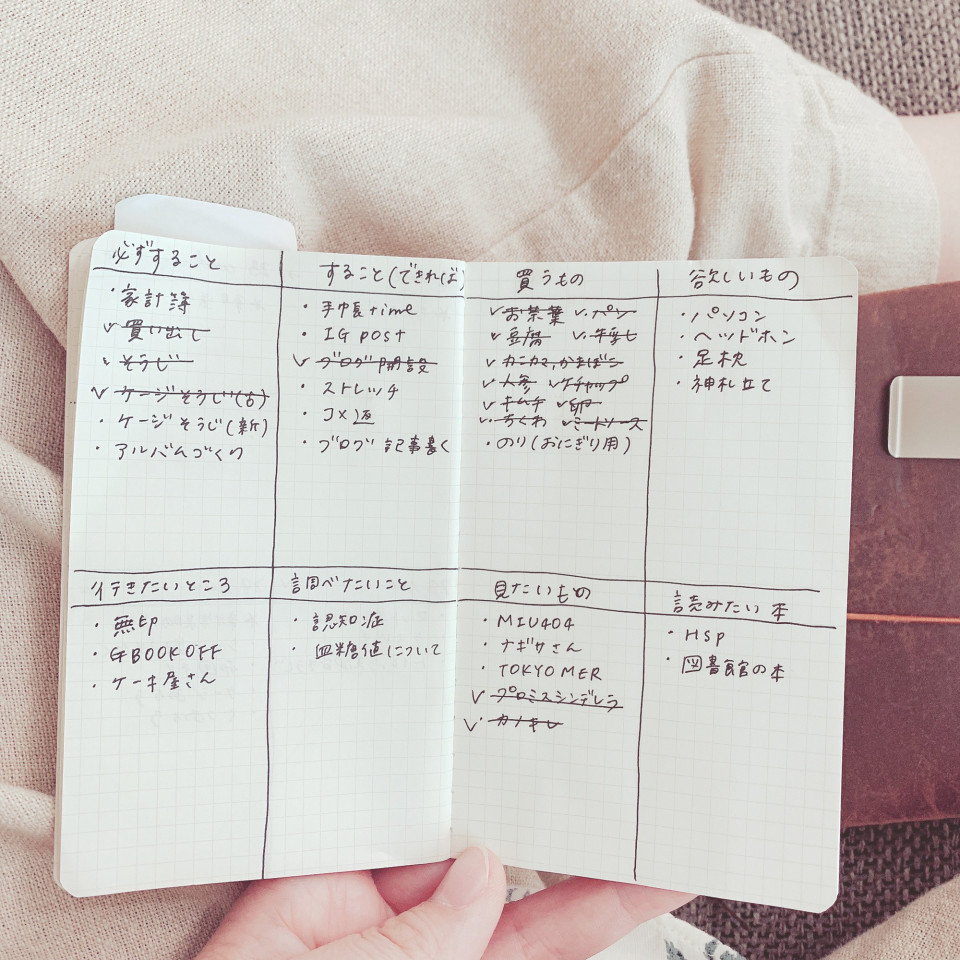 必ずすること
・家計簿
✓買い出し
✓そうじ
✓ケージそうじ(古)
・ケージそうじ(新)
・アルバムづくり
すること(できれば)
・手帳time
・IG post
✓ブログ開設
・ストレッチ
・コメ返
・ブログ記事書く
買うもの
✓お茶葉 ✓パン
✓豆腐 ✓牛乳
✓カニカマ,かまぼこ
✓人参 ✓ケチャップ
✓キムチ ✓卵
✓ちくわ ✓ミートソース
・のり(おにぎり用)
欲しいもの
・パソコン
・ヘッドホン
・足枕
・神札立て
行きたいところ
・無印
・GBOOKOFF
・ケーキ屋さん
調べたいこと
・認知症
・血糖値について
見たいもの
・MIU404
・ナギサさん
・TOKYO MER
✓・プロミスシンデレラ
✓・カノキレ
読みたい本
・HSP
・図書館の本